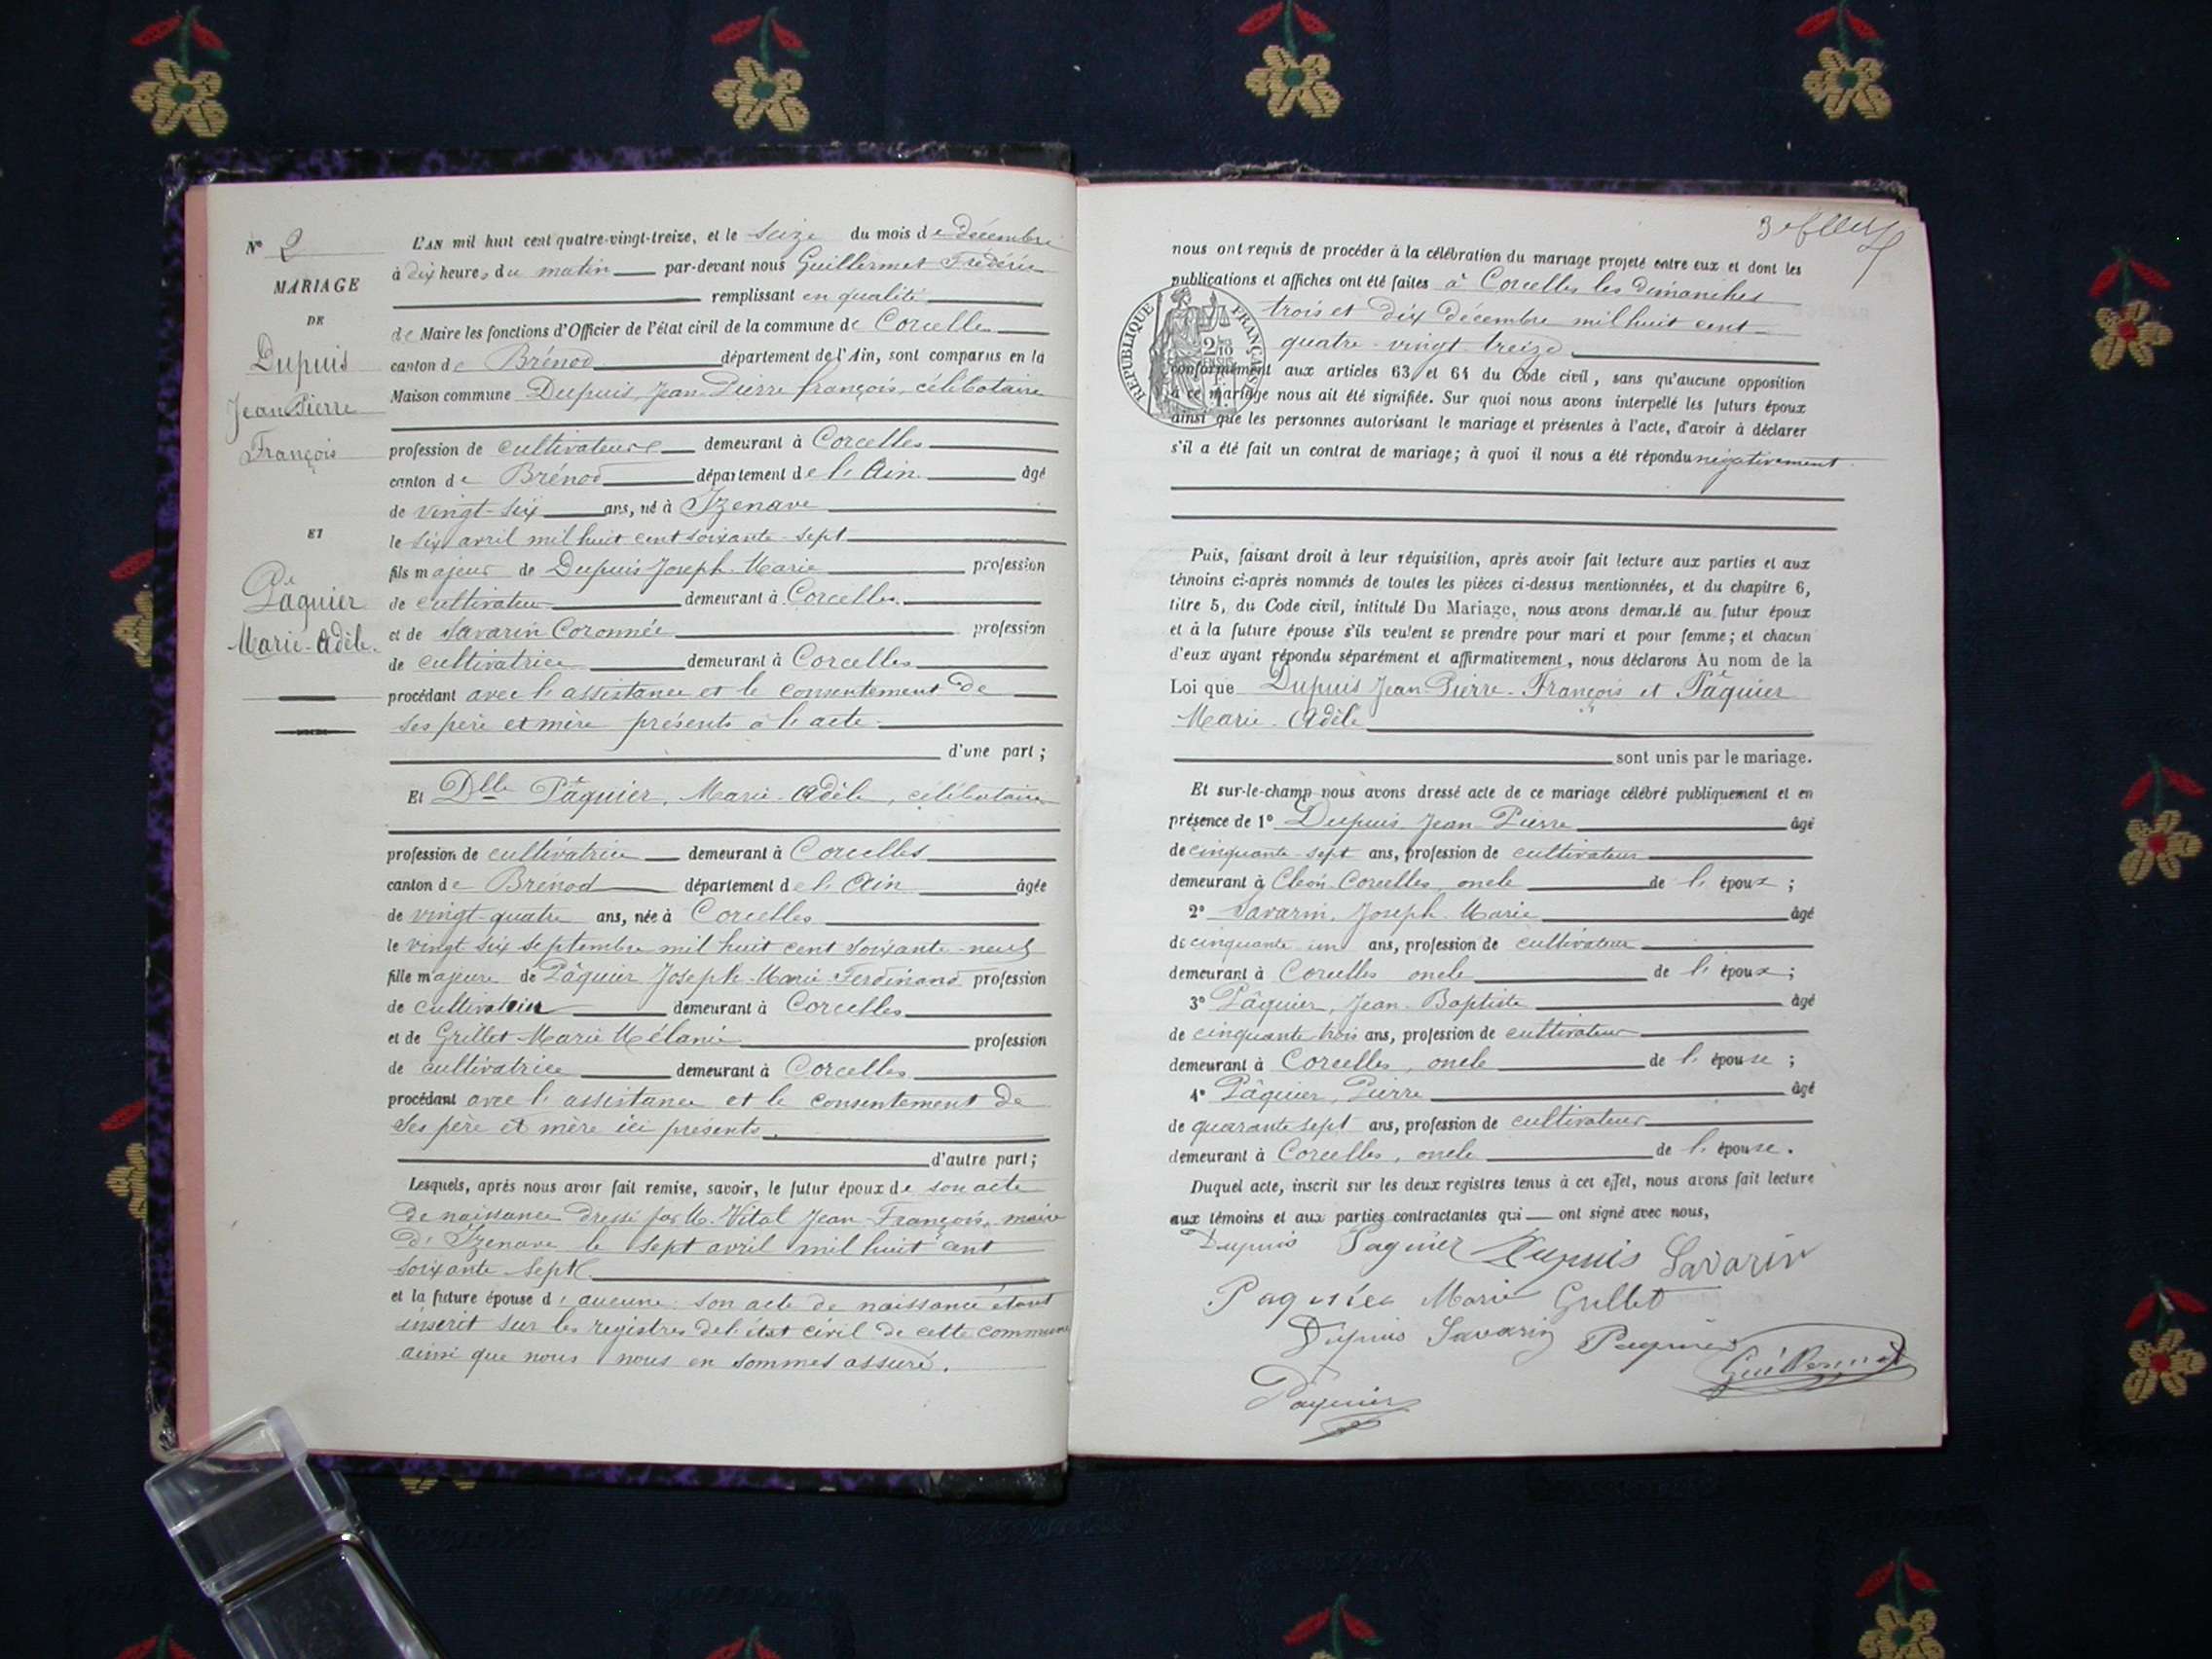 N° 2
MARIAGE
DE
Dupuis
Jean Pierre
François
ET
De
Pâquier
Marie-Adèle.
L'AN mil huit cent quatre-vingt-treize, et le seize du mois de Décembre
à dix heures du matin par-devant nous Guillermet Frédéric
remplissant en qualité
de Maire les fonctions d'Officier de l'état civil de la commune de Corcelles
canton de Brénod département de l'Ain, sont comparus en la
Maison commune Dupuis, Jean-Pierre françois, célibataire
profession de cultivateur demeurant à Corcelles
canton de Brénod département de l'Ain âgé
de vingt-six ans, né à Izenave
le six avril mil huit cent soixante-sept
fils majeur de Dupuis Joseph-Marie profession
de cultivateur demeurant à Corcelles
et de Savarin Coronnée profession
de cultivatrice demeurant à Corcelles
procédant avec l'assistance et le consentement de
ses père et mère présents à l'acte
d'une part;
Et Dlle Pâquier, Marie-Adèle, célibataire
profession de cultivatrice demeurant à Corcelles
canton de Brénod département de l'Ain âgée
de vingt-quatre ans, née à Corcelles
le vingt six septembre mil huit cent soixante-neuf
fille majeure de Pâquier Joseph-Marie-Ferdinand profession
de cultivateur demeurant à Corcelles
et de Grillet Marie Mélanie profession
de cultivatrice demeurant à Corcelles
procédant avec l'assistance et le consentement de
ses père et mère ici présents.
d'autre part;
Lesquels, après nous avoir fait remise, savoir, le futur époux de son acte
de naissance dressé par M. Vital Jean-François, maire
d'Izenave le sept avril mil huit cent
soixante-sept
et la future épouse d'aucune: son acte de naissance étant
inscrit sur les registres de l'état civil de cette commune
ainsi que nous nous en sommes assuré.
nous ont requis de procéder à la célébration du mariage projeté entre eux et dont les
publications et affiches ont été faites à Corcelles les dimanches
trois et dix décembre mil huit cent
quatre-vingt treize
RÉPUBLIQUE FRANÇAISE
conformément aux articles 63 et 64 du Code civil, sans qu'aucune opposition
à ce mariage nous ait été signifiée. Sur quoi nous avons interpellé les futurs époux
ainsi que les personnes autorisant le mariage et présentes à l'acte, d'avoir à déclarer
s'il a été fait un contrat de mariage; à quoi il nous a été répondu négativement
Puis, faisant droit à leur réquisition, après avoir fait lecture aux parties et aux
témoins ci-après nommés de toutes les pièces ci-dessus mentionnées, et du chapitre 6,
titre 5, du Code civil, intitulé Du Mariage, nous avons demandé au futur époux
et à la future épouse s'ils veulent se prendre pour mari et pour femme; et chacun
d'eux ayant répondu séparément et affirmativement, nous déclarons Au nom de la
Loi que Dupuis Jean-Pierre-François et Pâquier
Marie-Adèle
sont unis par le mariage.
Et sur-le-champ nous avons dressé acte de ce mariage célébré publiquement et en
présence de 1° Dupuis Jean-Pierre âgé
de cinquante-sept ans, profession de cultivateur
demeurant à Corcelles oncle de l'époux;
2° Savarin, Joseph-Marie âgé
de cinquante un ans, profession de cultivateur
demeurant à Corcelles oncle de l'époux;
3° Pâquier, Jean-Baptiste âgé
de cinquante trois ans, profession de cultivateur
demeurant à Corcelles, oncle de l'épouse;
4° Pâquier, Pierre âgé
de quarante sept ans, profession de cultivateur
demeurant à Corcelles, oncle de l'épouse.
Duquel acte, inscrit sur les deux registres tenus à cet effet, nous avons fait lecture
aux témoins et aux parties contractantes qui ont signé avec nous,
Dupuis Paquier Dupuis Savarin
Paquier Marie Grillet
Dupuis Savarin Paquier Guillermet
Paquier